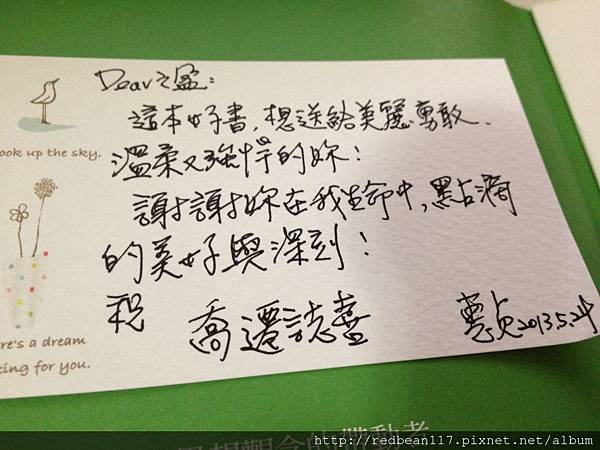 Dear 之盈：
這本好書，想送給美麗勇敢、
溫柔又強悍的妳！
謝謝妳在我生命中，點滴
的美好與深刻！
祝
喬遷誌喜
惠貞 2013.5.24
ook up the sky.
re's a dream
ting for you.
思想觀念的帶動者
http://redbean117.pixnet.net/album